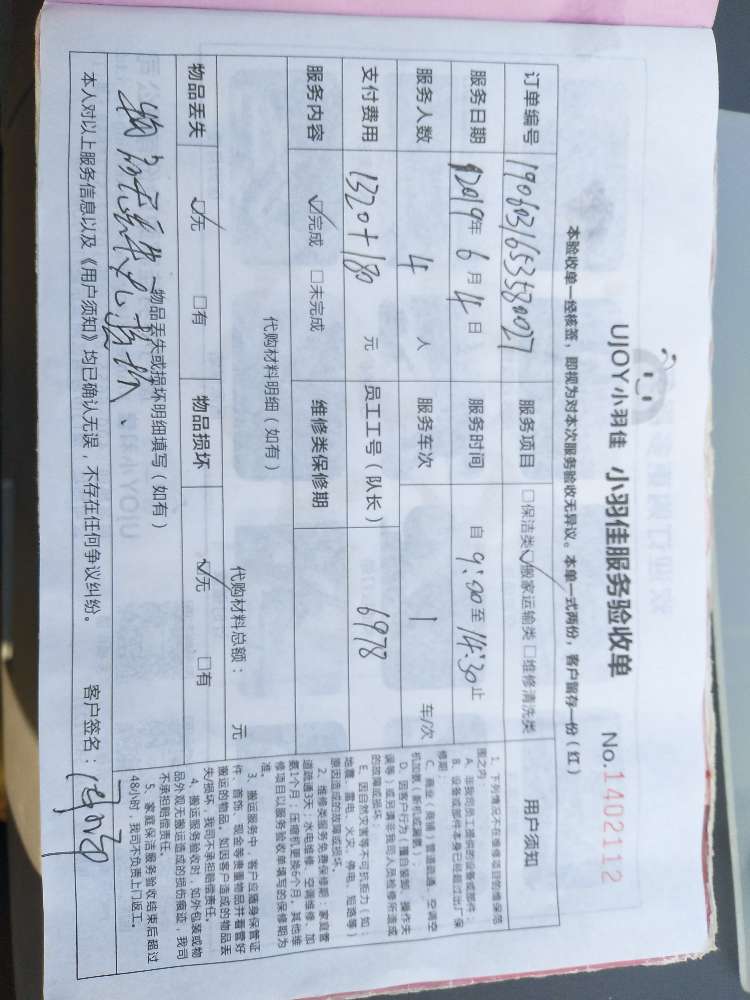 UJOY小羽佳 小羽佳服务验收单 No.1402112
本验收单一经核签，即视为对本次服务验收无异议。本单一式两份，客户留存一份（红）
订单编号 1906031653580027 服务项目 □保洁类 ☑搬家运输类 □维修清洗类
服务日期 2019年 6 月 4 日 服务时间 自 9:00 至 14:30 止
服务人数 4 人 服务车次 1 车/次
支付费用 1320+180 元 员工工号（队长） 6978
服务内容 ☑完成 □未完成 维修类保修期
代购材料明细（如有）
代购材料总额： 元
物品丢失 ☑无 □有 物品损坏 ☑无 □有
物品丢失或损坏明细填写（如有）
本人对以上服务信息以及《用户须知》均已确认无误，不存在任何争议纠纷。 客户签名：
用户须知
1、下列情况不在维修项目的维保范
围之内：
A、非我司员工提供的设备或部件；
B、设备或部件本身已经超过出厂保
修期；
C、商业（商铺）管道疏通、空调空
机加氨（新机或漏氨）；
D、因客户行为（擅自装卸、操作失
误等）或另请非我司人员检修所造成
的故障或损坏；
E、因自然灾害等不可抗拒力（如：
地震、雷电、火灾、停电、短路等）
原因造成的故障或损坏
2、维修类服务免费保修期：家庭管
道疏通3天；水电维修、空调维修、加
氨1个月；压缩机更换6个月；其他维
修项目以服务验收单填写的保修期为
准。
3、搬运服务中，客户应随身保管证
件、首饰、现金等贵重物品并看管好
搬运的物品，如因客户造成的物品丢
失/损坏，我司不承担赔偿责任。
4、搬运服务验收时，如外包装或物
品外观无搬运造成的损伤痕迹，我司
不承担赔偿责任。
5、家庭保洁服务验收结束后超过
48小时，我司不负责上门返工。